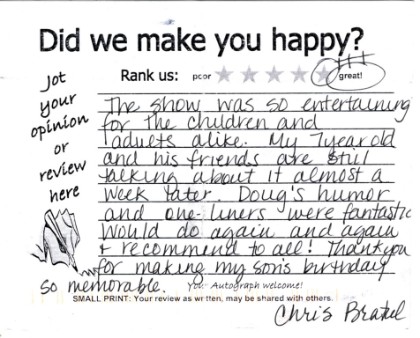 Did we make you happy?
Jot your opinion or review here
Rank us: poor great!
The show was so entertaining
for the children and
adults alike. My 7 year old
and his friends are still
talking about it almost a
week later. Doug's humor
and one-liners were fantastic
Would do again and again
+ recommend to all! Thank you
for making my son's birthday
so memorable.
Your Autograph welcome!
SMALL PRINT: Your review as written, may be shared with others.
Chris